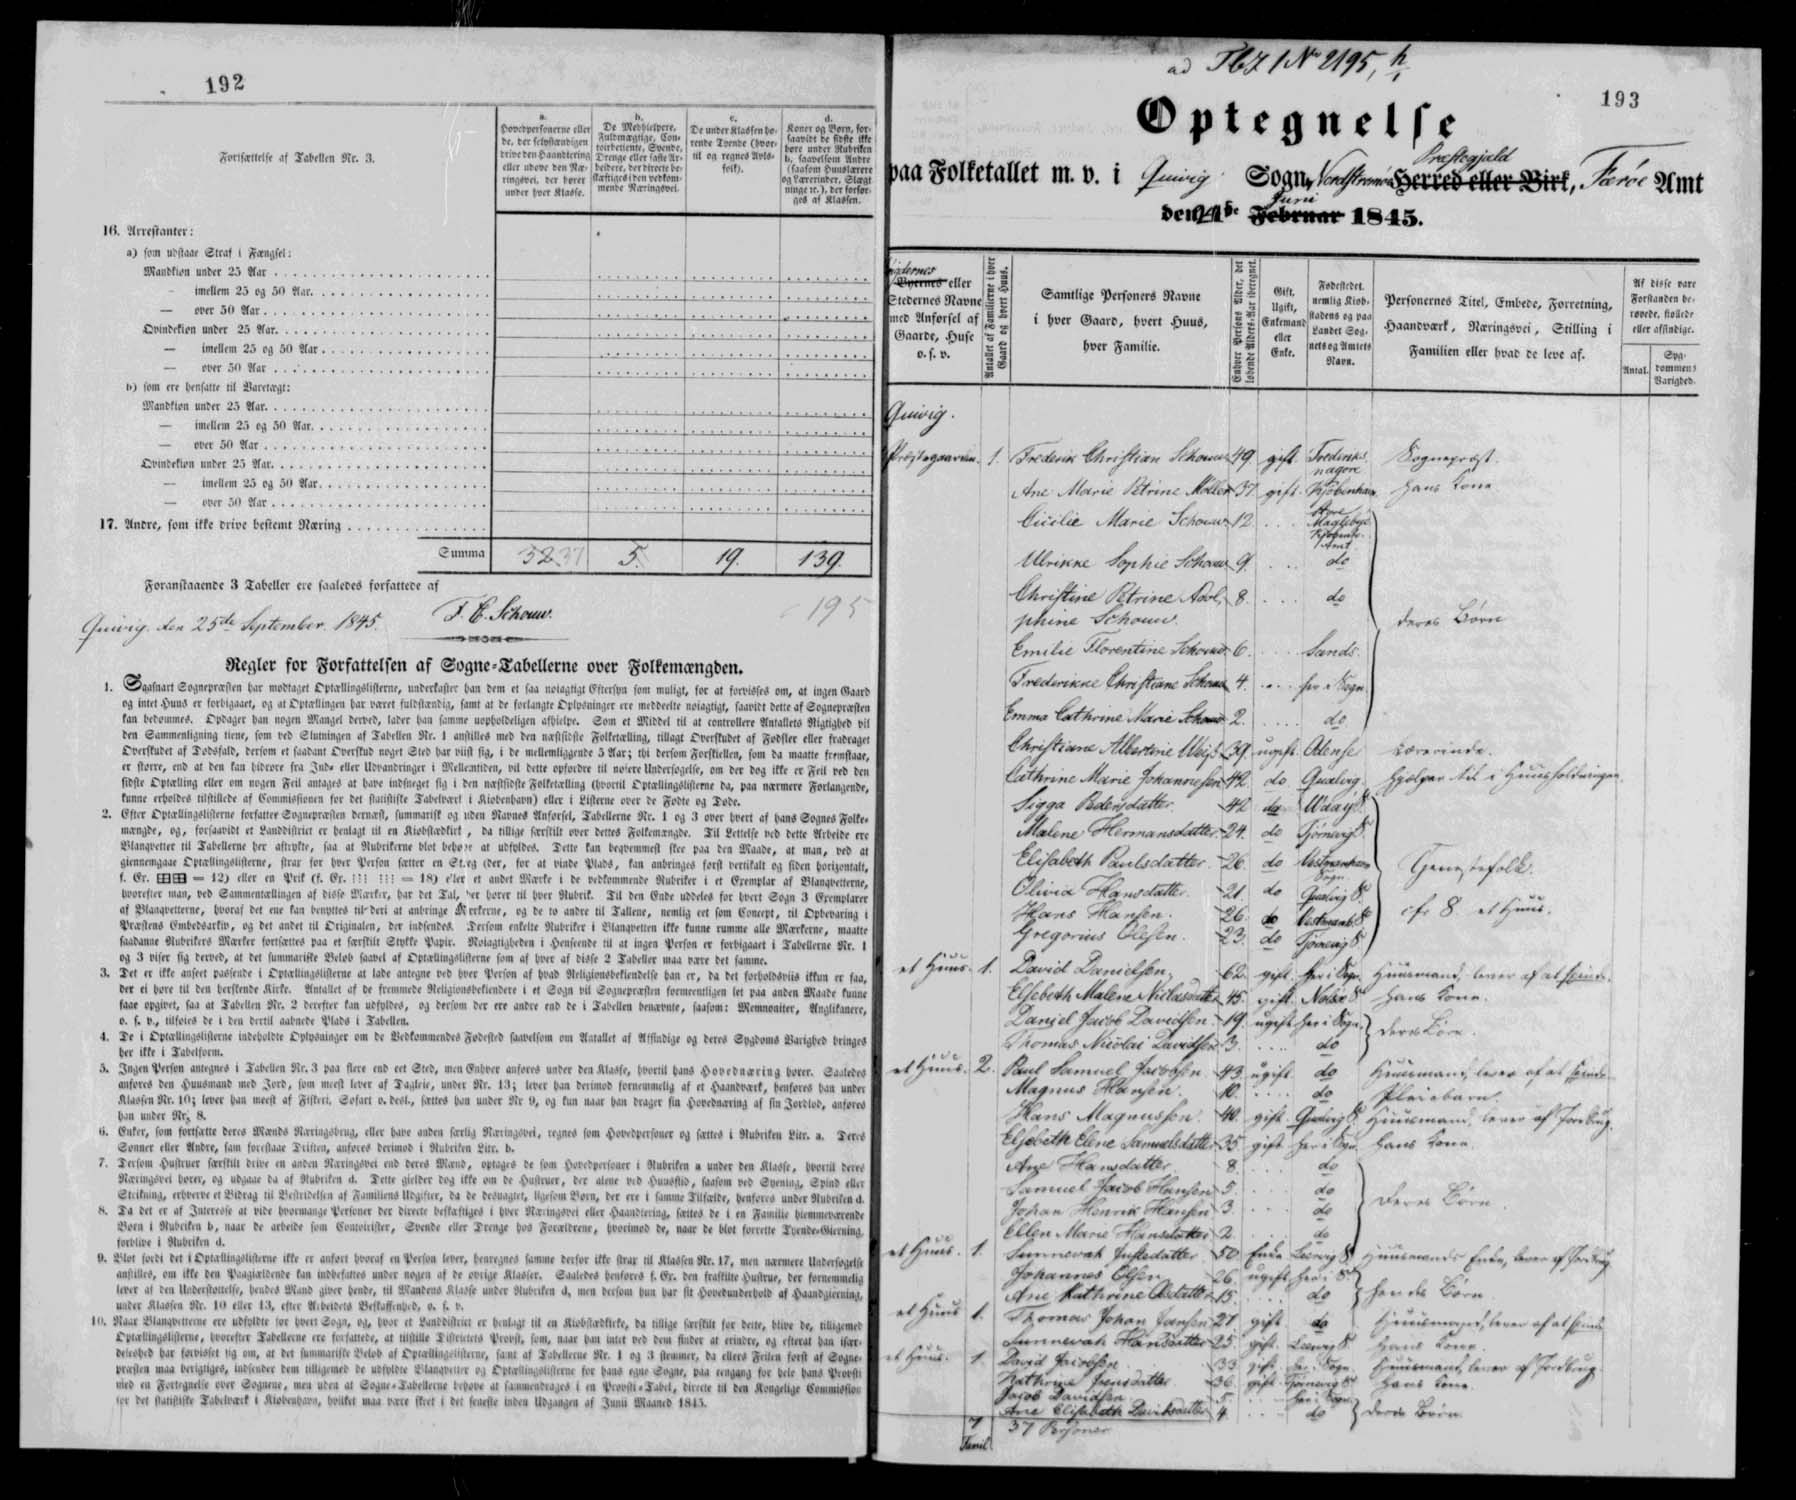 192
Fortsættelse af Tabellen Nr. 3.
a. Hovedpersonerne eller de, der selvstændigen drive den Haandtering eller udøve den Næringsvei, der hører under hver Klasse.
b. De Medhielpere, Fuldmægtige, Contoirbetiente, Svende, Drenge eller faste Arbeidere, der directe beskæftiges i den vedkommende Næringsvei.
c. De under Klassen hørende Tyende (hvortil og regnes Avlsfolk).
d. Koner og Børn, forsaavidt de sidste ikke høre under Rubriken b, saavelsom Andre (saasom Huuslærere og Lærerinder, Slægtninge ic.), der forsørges af Klassen.
16. Arrestanter:
a) som udstaae Straf i Fængsel:
Mandkiøn under 25 Aar
— imellem 25 og 50 Aar.
— over 50 Aar
Qvindekiøn under 25 Aar.
— imellem 25 og 50 Aar
— over 50 Aar
b) som ere hensatte til Varetægt:
Mandkiøn under 25 Aar.
— imellem 25 og 50 Aar.
— over 50 Aar
Qvindekiøn under 25 Aar.
— imellem 25 og 50 Aar.
— over 50 Aar
17. Andre, som ikke drive bestemt Næring
Summa 32 37 5. 19. 139.
Foranstaaende 3 Tabeller ere saaledes forfattede af
195
Quivig den 25de September 1845. F. C. Schouw.
Regler for Forfattelsen af Sogne-Tabellerne over Folkemængden.
1. Saasnart Sognepræsten har modtaget Optællingslisterne, underkaster han dem et saa nøiagtigt Eftersyn som muligt, for at forvisses om, at ingen Gaard
og intet Huus er forbigaaet, og at Optællingen har været fuldstændig, samt at de forlangte Oplysninger ere meddeelte nøiagtigt, saavidt dette af Sognepræsten
kan bedømmes. Opdager han nogen Mangel derved, lader han samme uopholdeligen afhielpe. Som et Middel til at controllere Antallets Rigtighed vil
den Sammenligning tiene, som ved Slutningen af Tabellen Nr. 1 anstilles med den næstsidste Folketælling, tillagt Overskudet af Fødsler eller fradraget
Overskudet af Dødsfald, dersom et saadant Overskud noget Sted har viist sig, i de mellemliggende 5 Aar; thi dersom Forskiellen, som da maatte fremstaae,
er større, end at den kan hidrøre fra Ind- eller Udvandringer i Mellemtiden, vil dette opfordre til nøiere Undersøgelse, om der dog ikke er Feil ved den
sidste Optælling eller om nogen Feil antages at have indsneget sig i den næstsidste Folketælling (hvortil Optællingslisterne da, paa nærmere Forlangende,
kunne erholdes tilstillede af Commissionen for det statistiske Tabelværk i Kiøbenhavn) eller i Listerne over de Fødte og Døde.
2. Efter Optællingslisterne forfatter Sognepræsten dernæst, summarisk og uden Navnes Anførsel, Tabellerne Nr. 1 og 3 over hvert af hans Sognes Folke-
mængde, og, forsaavidt et Landdistrict er henlagt til en Kiøbstædkirke, da tillige særskilt over dettes Folkemængde. Til Lettelse ved dette Arbeide ere
Blanqvetter til Tabellerne her aftrykte, saa at Rubrikerne blot behøve at udfyldes. Dette kan beqvemmest skee paa den Maade, at man, ved at
giennemgaae Optællingslisterne, strax for hver Person sætter en Streg (der, for at vinde Plads, kan anbringes først vertikalt og siden horizontalt,
f. Ex. = 12) eller en Prik (f. Ex. = 18) eller et andet Mærke i de vedkommende Rubriker i et Exemplar af Blanqvetterne,
hvorefter man, ved Sammentællingen af disse Mærker, har det Tal, der hører til hver Rubrik. Til den Ende uddeles for hvert Sogn 3 Exemplarer
af Blanqvetterne, hvoraf det ene kan benyttes til deri at anbringe Mærkerne, og de to andre til Tallene, nemlig eet som Concept, til Opbevaring i
Præstens Embedsarkiv, og det andet til Originalen, der indsendes. Dersom enkelte Rubriker i Blanqvetten ikke kunne rumme alle Mærkerne, maatte
saadanne Rubrikers Mærker fortsættes paa et særskilt Stykke Papir. Nøiagtigheden i Henseende til at ingen Person er forbigaaet i Tabellerne Nr. 1
og 3 viser sig derved, at det summariske Beløb saavel af Optællingslisterne som af hver af disse 2 Tabeller maa være det samme.
3. Det er ikke anseet passende i Optællingslisterne at lade antegne ved hver Person af hvad Religionsbekiendelse han er, da det forholdsviis ikkun er faa,
der ei høre til den herskende Kirke. Antallet af de fremmede Religionsbekiendere i et Sogn vil Sognepræsten formeentligen let paa anden Maade kunne
faae opgivet, saa at Tabellen Nr. 2 derefter kan udfyldes, og dersom der ere andre end de i Tabellen benævnte, saasom: Memnoniter, Anglikanere,
o. s. v., tilføies de i den dertil aabnede Plads i Tabellen.
4. De i Optællingslisterne indeholdte Oplysninger om de Vedkommendes Fødested saavelsom om Antallet af Afsindige og deres Sygdoms Varighed bringes
her ikke i Tabelform.
5. Ingen Person antegnes i Tabellen Nr. 3 paa flere end eet Sted, men Enhver anføres under den Klasse, hvortil hans Hovednæring hører. Saaledes
anføres den Huusmand med Jord, som meest lever af Dagleie, under Nr. 13; lever han derimod fornemmelig af et Haandværk, henføres han under
Klassen Nr. 10; lever han meest af Fiskeri, Søfart o. desl., sættes han under Nr 9, og kun naar han drager sin Hovednæring af sin Jordlod, anføres
han under Nr. 8.
6. Enker, som fortsætte deres Mænds Næringsbrug, eller have anden særlig Næringsvei, regnes som Hovedpersoner og sættes i Rubriken Litr. a. Deres
Sønner eller Andre, som forestaae Driften, anføres derimod i Rubriken Litr. b.
7. Dersom Hustruer særskilt drive en anden Næringsvei end deres Mænd, optages de som Hovedpersoner i Rubriken a under den Klasse, hvortil deres
Næringsvei hører, og udgaae da af Rubriken d. Dette gielder dog ikke om de Hustruer, der alene ved Huusflid, saasom ved Syening, Spind eller
Strikning, erhverve et Bidrag til Bestridelsen af Familiens Udgifter, da de desuagtet, ligesom Børn, der ere i samme Tilfælde, henføres under Rubriken d.
8. Da det er af Interesse at vide hvormange Personer der directe beskæftiges i hver Næringsvei eller Haandtering, sættes de i en Familie hiemmeværende
Børn i Rubriken b, naar de arbeide som Contoirister, Svende eller Drenge hos Forældrene, hvorimod de, naar de blot forrette Tyende-Gierning,
forblive i Rubriken d.
9. Blot fordi det i Optællingslisterne ikke er anført hvoraf en Person lever, henregnes samme derfor ikke strax til Klassen Nr. 17, men nærmere Undersøgelse
anstilles, om ikke den Paagiældende kan indbefattes under nogen af de øvrige Klasser. Saaledes henføres f. Ex. den fraskilte Hustrue, der fornemmelig
lever af den Understøttelse, hendes Mand giver hende, til Mandens Klasse under Rubriken d, men dersom hun har sit Hovedunderhold af Haandgierning,
under Klassen Nr. 10 eller 13, efter Arbeidets Beskaffenhed, o. s. v.
10. Naar Blanqvetterne ere udfyldte for hvert Sogn, og, hvor et Landdistrict er henlagt til en Kiøbstædkirke, da tillige særskilt for dette, blive de, tilligemed
Optællingslisterne, hvorefter Tabellerne ere forfattede, at tilstille Districtets Provst, som, naar han intet ved dem finder at erindre, og efterat han især-
deleshed har forvisset sig om, at det summariske Beløb af Optællingslisterne, samt af Tabellerne Nr. 1 og 3 stemmer, da ellers Feilen først af Sogne-
præsten maa berigtiges, indsender dem tilligemed de udfyldte Blanqvetter og Optællingslisterne for hans egne Sogne, paa eengang for hele hans Provsti
med en Fortegnelse over Sognene, men uden at Sogne-Tabellerne behøve at sammendrages i en Provsti-Tabel, directe til den Kongelige Commission
for det statistiske Tabelværk i Kiøbenhavn, hvilket maa være skeet i det seneste inden Udgangen af Junii Maaned 1845.
ad No 2195,
193
Optegnelse
Præstegjæld
paa Folketallet m. v. i Quivig Sogn, Nordstrømøe Herred eller Birk, Færøe Amt
Juni
den 21de Februar 1845.
Bygdernes
Byernes eller Stedernes Navne med Anførsel af Gaarde, Huse o. s. v.
Antallet af Familierne i hver Gaard og hvert Huus.
Samtlige Personers Navne i hver Gaard, hvert Huus, hver Familie.
Enhver Persons Alder, det løbende Alders-Aar iberegnet.
Gift, Ugift, Enkemand eller Enke.
Fødestedet, nemlig Kiøbstadens og paa Landet Sognets og Amtets Navn.
Personernes Titel, Embede, Forretning, Haandværk, Næringsvei, Stilling i Familien eller hvad de leve af.
Af disse vare Forstanden berøvede, fiollede eller afsindige.
Antal. Sygdommens Varighed.
Quivig.
Præstegaarden. 1. Frederik Christian Schouw 49. gift. Frederiksnagore Sognepræst.
Ane Marie Petrine Møller 37 gift. Kjøbenhavn hans Kone
Cicilie Marie Schouw 12 Store Magleby Kjøbenh. Amt
Ulrikke Sophie Schouw 9. do
Christine Petrine Adolphine Schouw. 8. do deres Børn
Emilie Florentine Schouw 6. Sands.
Frederikke Christiane Schouw 4. her i Sogn.
Emma Cathrine Marie Schouw 2. do
Christiane Albertine 39. ugift. Odense Lærerinde.
Cathrine Marie Johannesen 42. do Qualvig. hjelper til i Huusholdningen.
Sigga Pedersdatter. 42 do Waay S.
Malene Hermansdatter. 24. do Tjørnevig S.
Elisabeth Paulsdatter. 26. do Vestmanhavn Sogn Tjenestefolk.
Olivia Hansdatter. 21. do Qualvig S.
Hans Hansen. 26. do Vestmanh. S. cfr 8 et Huus.
Gregorius Olesen. 23. do Tjørnevig S.
et Huus. 1. David Danielsen. 62. gift. her i Sogn. Huusmand, lever af at
Elsebeth Malene Niclasdatter 45. gift. Nolsøe S. hans Kone.
Daniel Jacob Davidsen. 19. ugift her i Sogn. deres Børn.
Thomas Nicolai Davidsen 3. do
et Huus. 2. Paul Samuel Jacobsen 43. ugift do Huusmand, lever af at
Magnus Hansen. 10. do Pleiebarn.
Hans Magnussen. 40. gift. Qualvig S. Huusmand, lever af Jordbrug.
Elsebeth Elene Samuelsdatter 35. gift her i Sogn hans Kone.
Ane Hansdatter 8. do
Samuel Jacob Hansen 5. do deres Børn.
Johan Henrik Hansen 3. do
Ellen Marie Hansdatter 2. do
et Huus. 1. Sunnevah Justedatter 50 Enke Leervig S. Huusmands Enke, lever af Jordbrug.
Johannes Olsen 26. ugift her i S. hendes Børn.
Ane Kathrine Olsdatter 15. do
et Huus 1. Thomas Johan Jansen 27 gift do Huusmand, lever af at
Sunnevah Hansdatter 25. gift. Leervig S. hans Kone
et Huus. 1 David Jacobsen 33 gift. her i Sogn Huusmand, lever af Jordbrug.
Kathrine Jensdatter 36. gift. Tjørnevig S hans Kone.
Jacob Davidsen 5. her i Sogn
Ane Elisabeth Davidsdatter 4. do deres Børn.
7 Famil 37 Personer